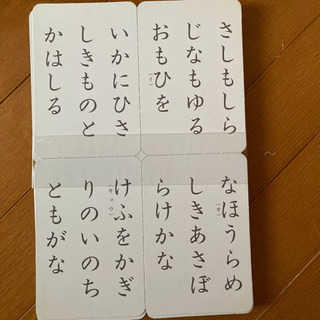 さしもしら
じなもゆる
おもひ(イ)を
いかにひさ
しきものと
かはしる
なほ(オ)うらめ
しきあさぼ
らけかな
けふ(キョウ)をかぎ
りのいのち
ともがな